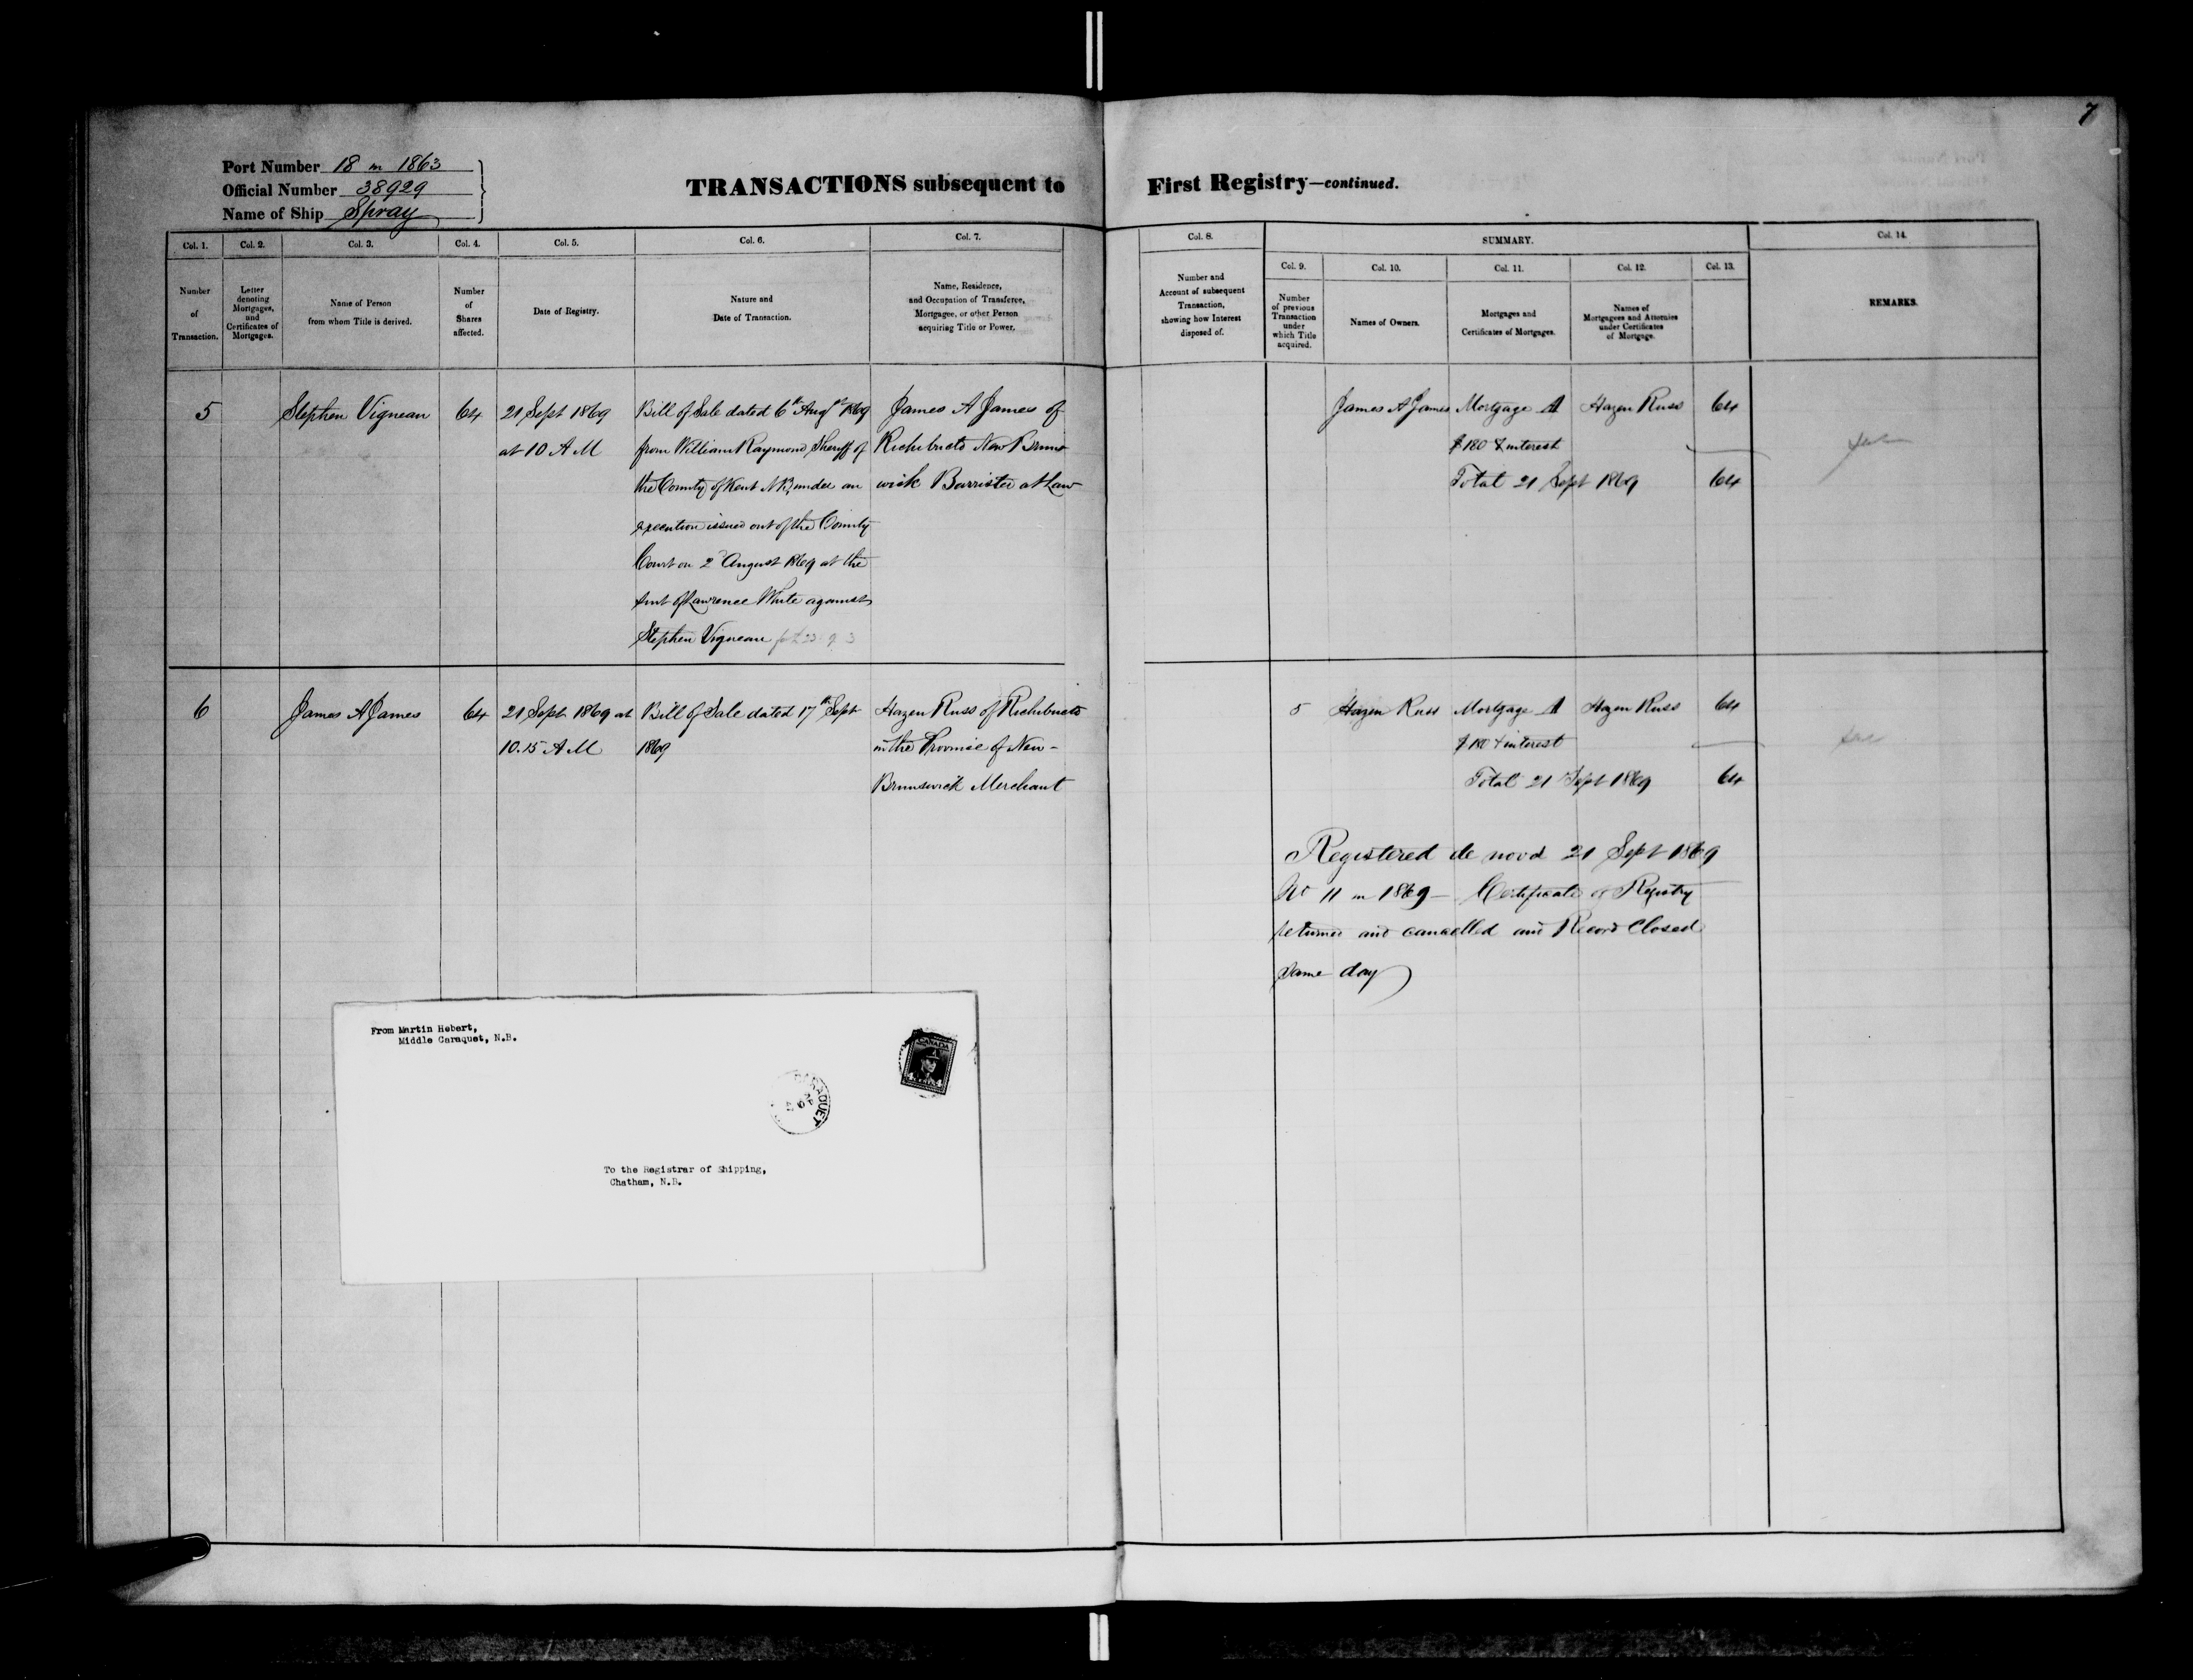 7
Port Number 18 in 1863
Official Number 38929
Name of Ship Spray
TRANSACTIONS subsequent to First Registry—continued.
Col. 1.
Number
of
Transaction.
Col. 2.
Letter
denoting
Mortgages,
and
Certificates of
Mortgages.
Col. 3.
Name of Person
from whom Title is derived.
Col. 4.
Number
of
Shares
affected.
Col. 5.
Date of Registry.
Col. 6.
Nature and
Date of Transaction.
Col. 7.
Name, Residence,
and Occupation of Transferee,
Mortgagee, or other Person
acquiring Title or Power.
Col. 8.
Number and
Account of subsequent
Transaction,
showing how Interest
disposed of.
SUMMARY.
Col. 9.
Number
of previous
Transaction
under
which Title
acquired.
Col. 10.
Names of Owners.
Col. 11.
Mortgages and
Certificates of Mortgages.
Col. 12.
Names of
Mortgagees and Attornies
under Certificates
of Mortgage.
Col. 13.
Col. 14.
REMARKS.
5
Stephen Vigneau
64
21 Sept 1869
at 10 A M
Bill of Sale dated 6th Augst 1869
from William Raymond Sheriff of
the County of Kent N B, under an
execution issued out of the County
Court on 2d August 1869 at the
suit of Lawrence White against
Stephen Vigneau
James A James of
Richibucto New Bruns
wick Barrister at Law
James A James Mortgage A Hazen Russ 64
$180 & interest
Total 21 Sept 1869 64
6
James A James
64
21 Sept 1869 at
10.15 A M
Bill of Sale dated 17th Sept
1869
Hazen Russ of Richibucto
in the Province of New-
Brunswick Merchant
5 Hazen Russ Mortgage A Hazen Russ 64
$180 & interest
Total 21 Sept 1869 64
Registered de novo 21 Sept 1869
No 11 in 1869 — Certificate of Registry
returned and cancelled and Record Closed
same day
From Martin Hebert,
Middle Caraquet, N.B.
CANADA
4 CENTS 4
CARAQUET
To the Registrar of Shipping,
Chatham, N.B.